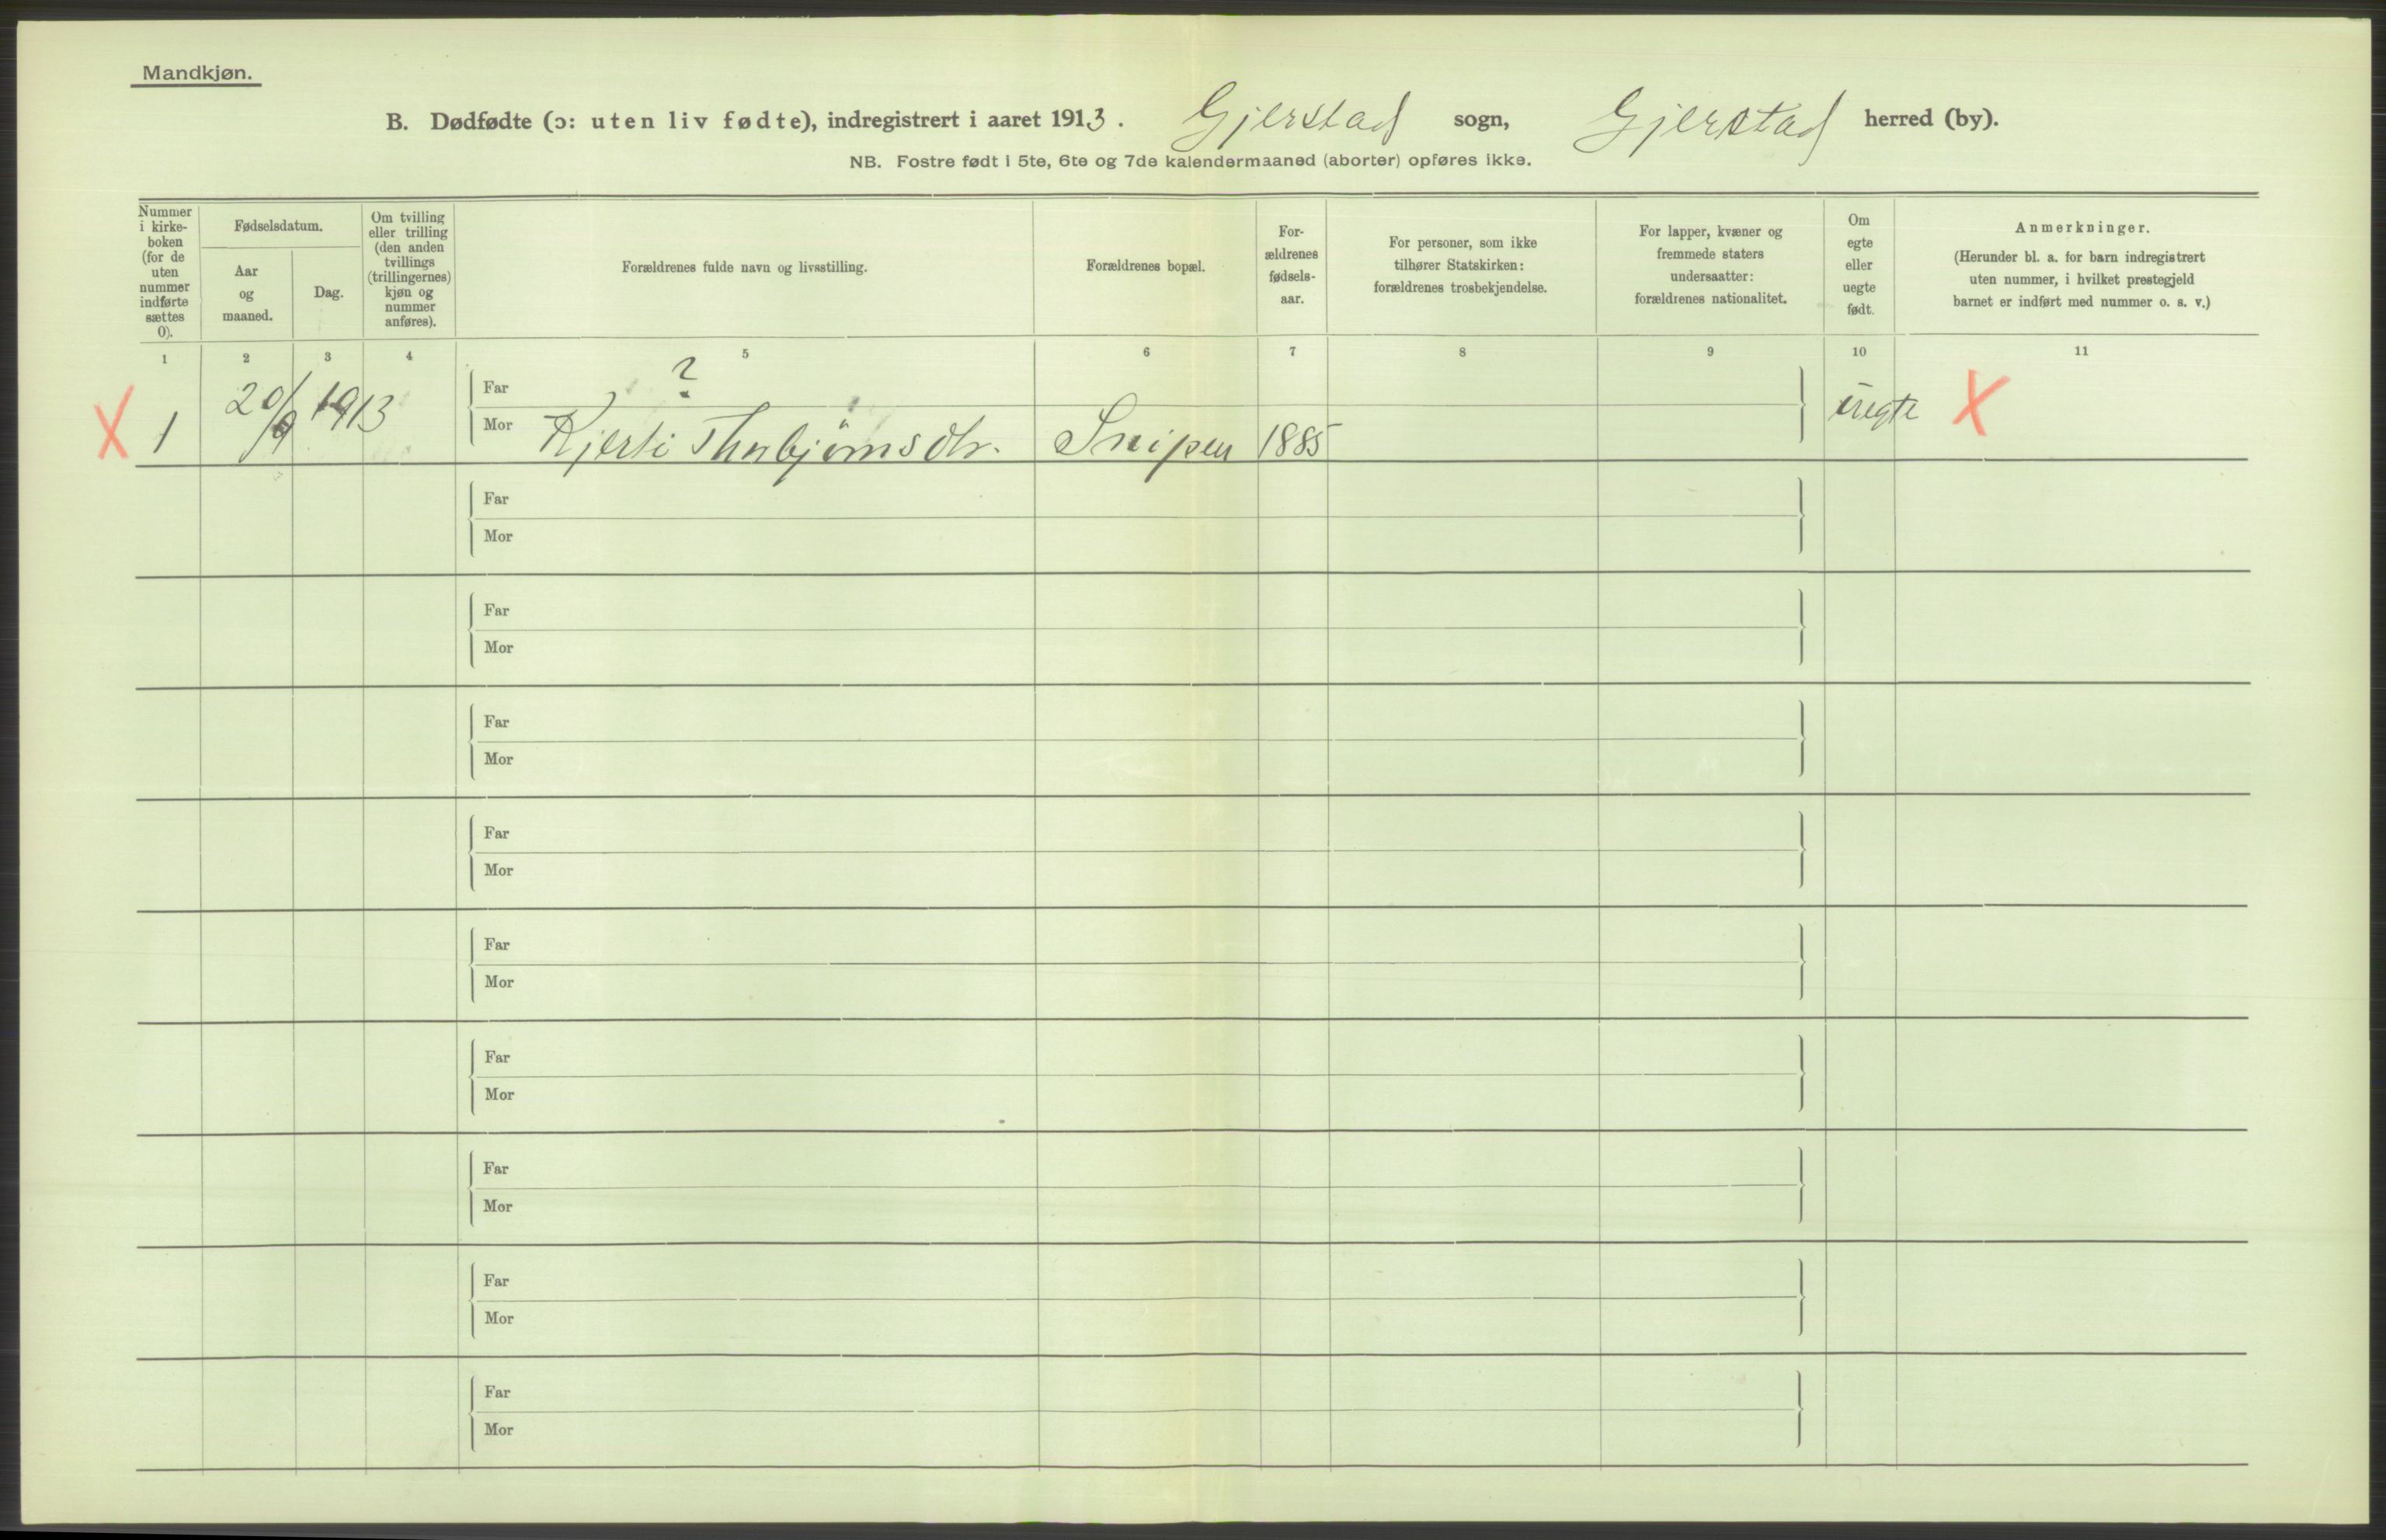 Mandkjøn.
B. Dødfødte (ɔ: uten liv fødte), indregistrert i aaret 1913. Gjerstad sogn, Gjerstad herred (by).
NB. Fostre født i 5te, 6te og 7de kalendermaaned (aborter) opføres ikke.
Nummer
i kirke-
boken
(for de
uten
nummer
indførte
sættes
0).
Fødselsdatum.
Aar
og
maaned.
Dag.
Om tvilling
eller trilling
(den anden
tvillings
(trillingernes)
kjøn og
nummer
anføres).
Forældrenes fulde navn og livsstilling.
Forældrenes bopæl.
For-
ældrenes
fødsels-
aar.
For personer, som ikke
tilhører Statskirken:
forældrenes trosbekjendelse.
For lapper, kvæner og
fremmede staters
undersaatter:
forældrenes nationalitet.
Om
egte
eller
uegte
født.
Anmerkninger.
(Herunder bl. a. for barn indregistrert
uten nummer, i hvilket prestegjeld
barnet er indført med nummer o. s. v.)
1 2 3 4 5 6 7 8 9 10 11
Far ?
X 1 20/9 1913 Mor Kjersti Thorbjørnsdtr. Snipen 1885 uegte X
Far
Mor
Far
Mor
Far
Mor
Far
Mor
Far
Mor
Far
Mor
Far
Mor
Far
Mor
Far
Mor